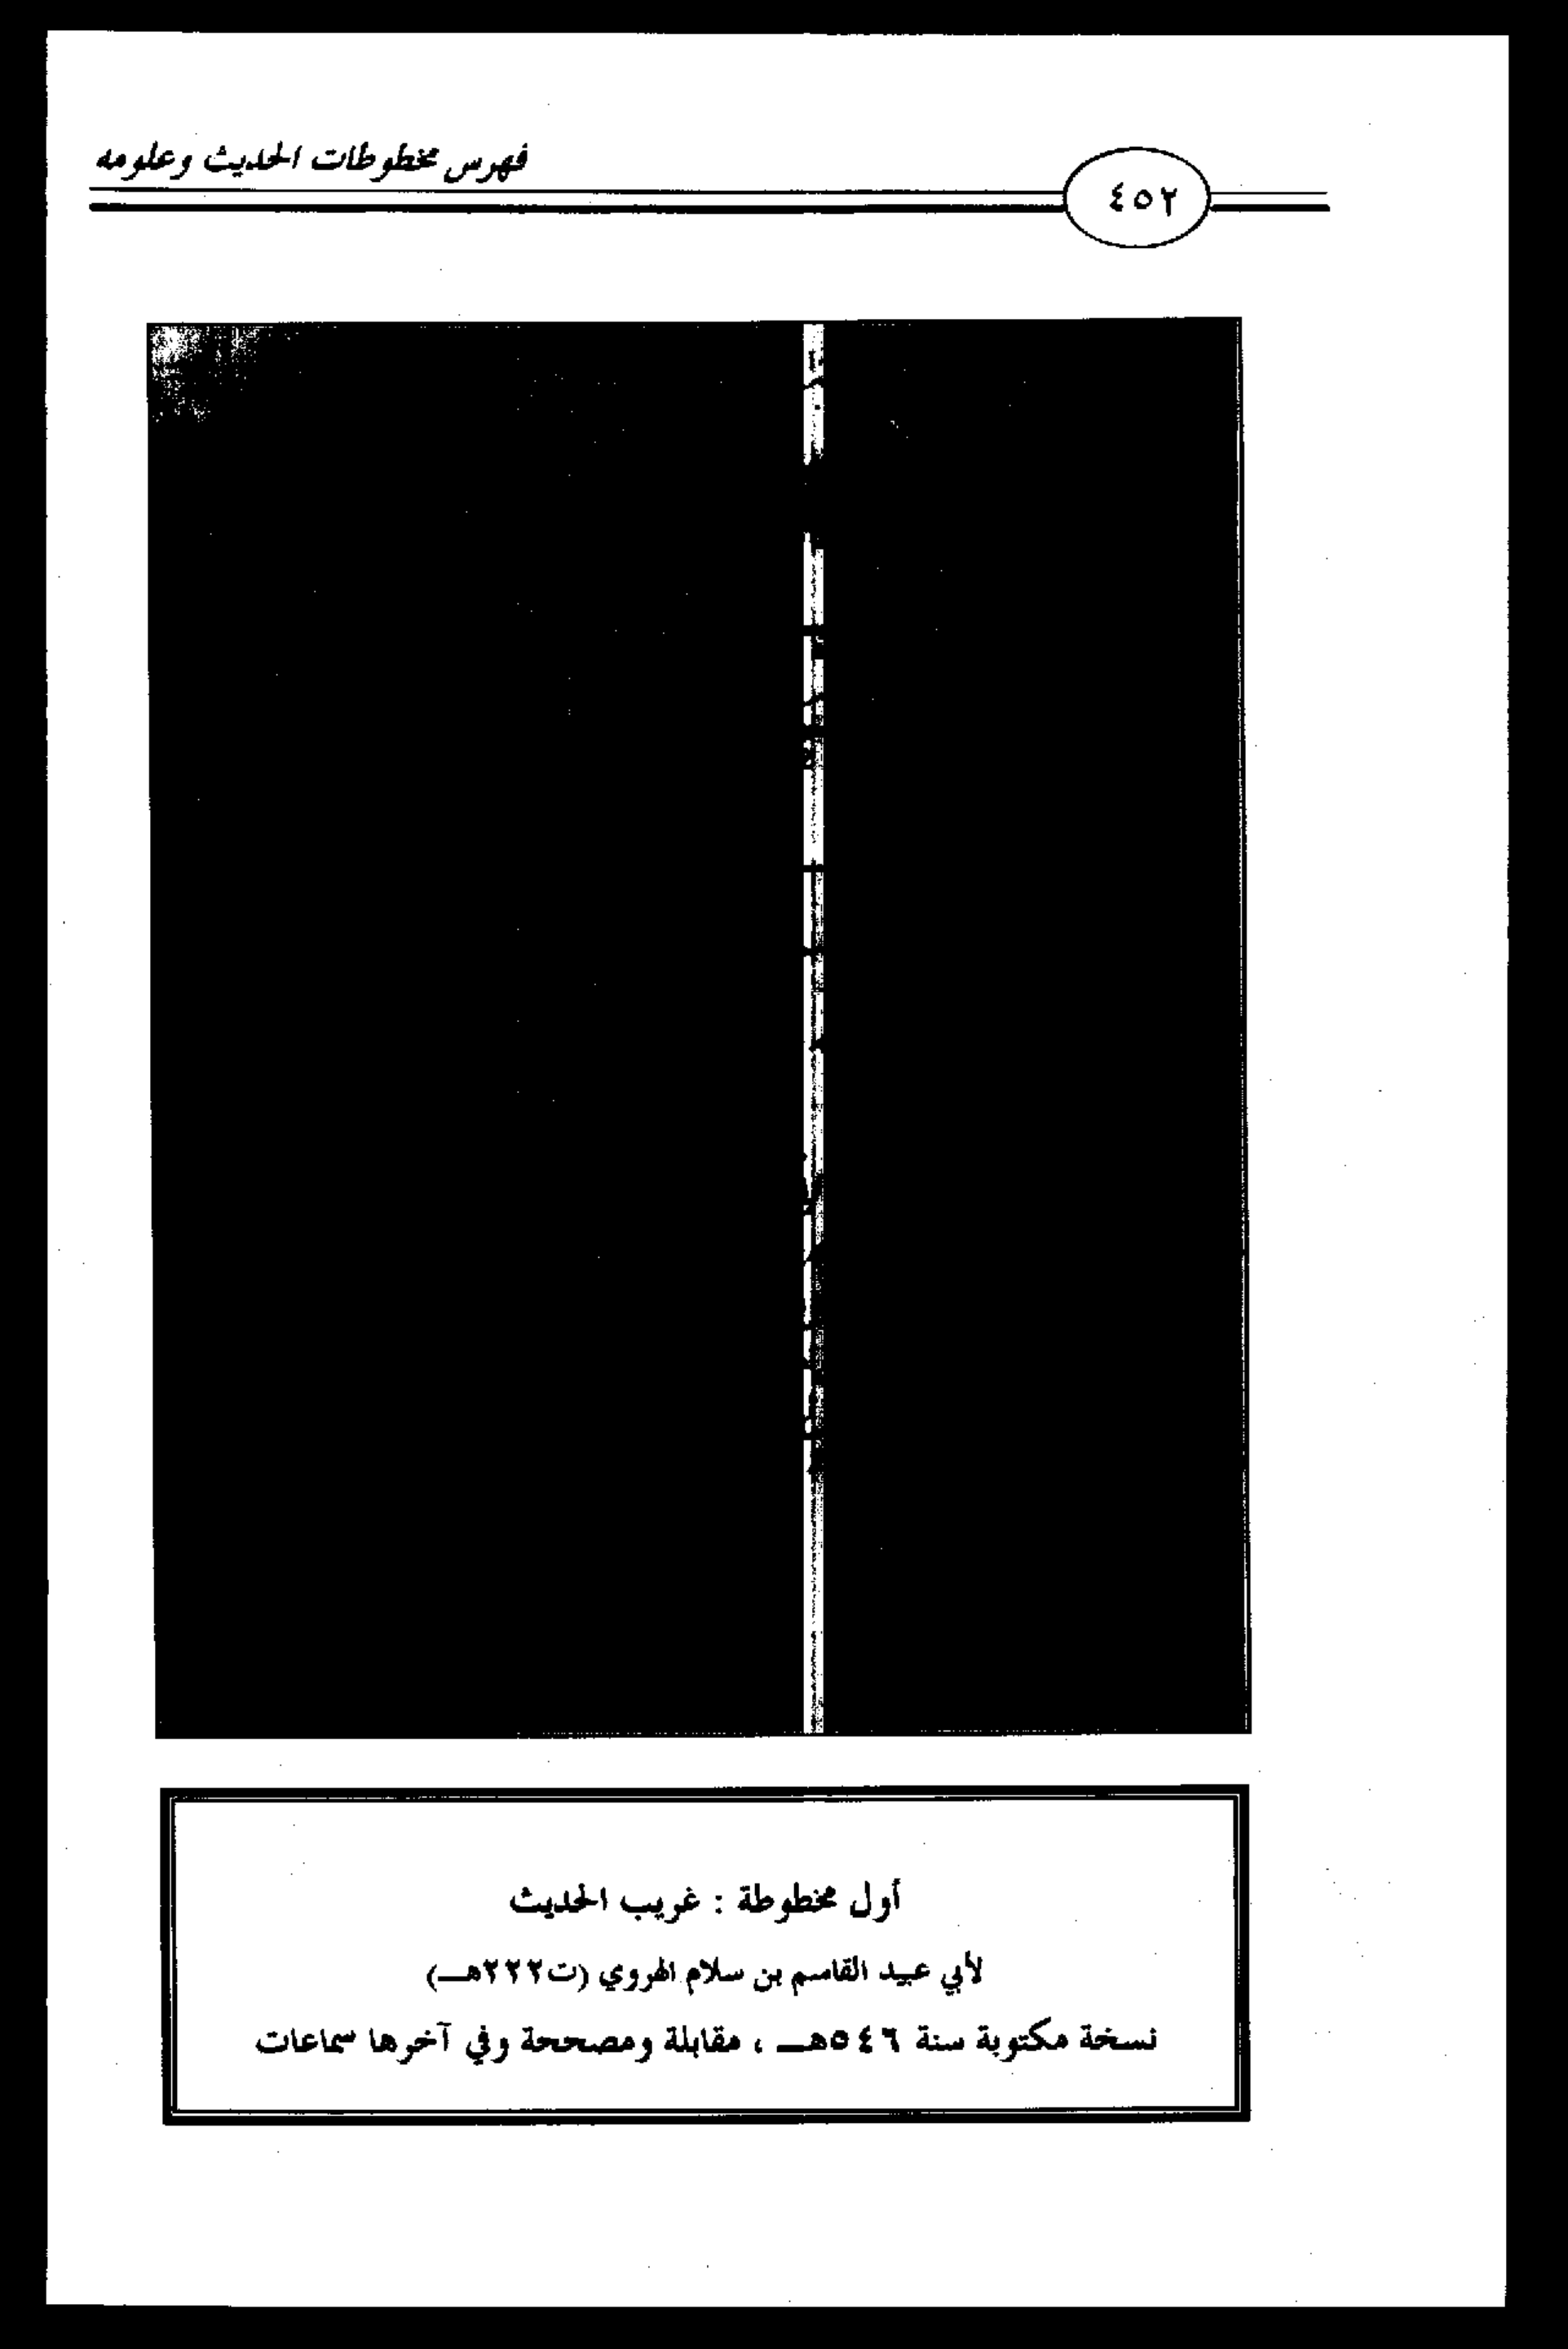 فهرس مخطوطات الحديث وعلومه
٤٥٢
أول مخطوطة : غريب الحديث
لأبي عبيد القاسم بن سلام الهروي (ت٢٢٢هـ)
نسخة مكتوبة سنة ٥٤٦هـ ، مقابلة ومصححة وفي آخرها سماعات